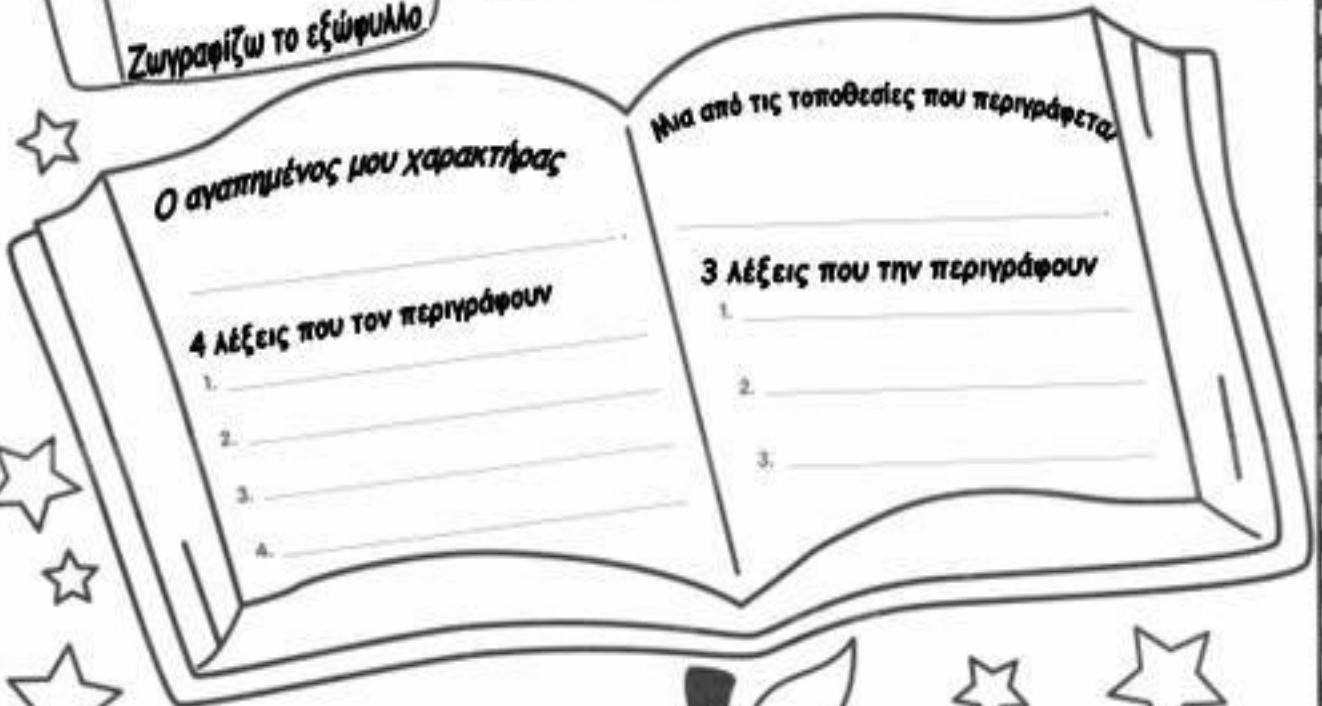 Ζωγραφίζω το εξώφυλλο
Ο αγαπημένος μου χαρακτήρας
.
4 λέξεις που τον περιγράφουν
1.
2.
3.
4.
Μια από τις τοποθεσίες που περιγράφεται
.
3 λέξεις που την περιγράφουν
1.
2.
3.